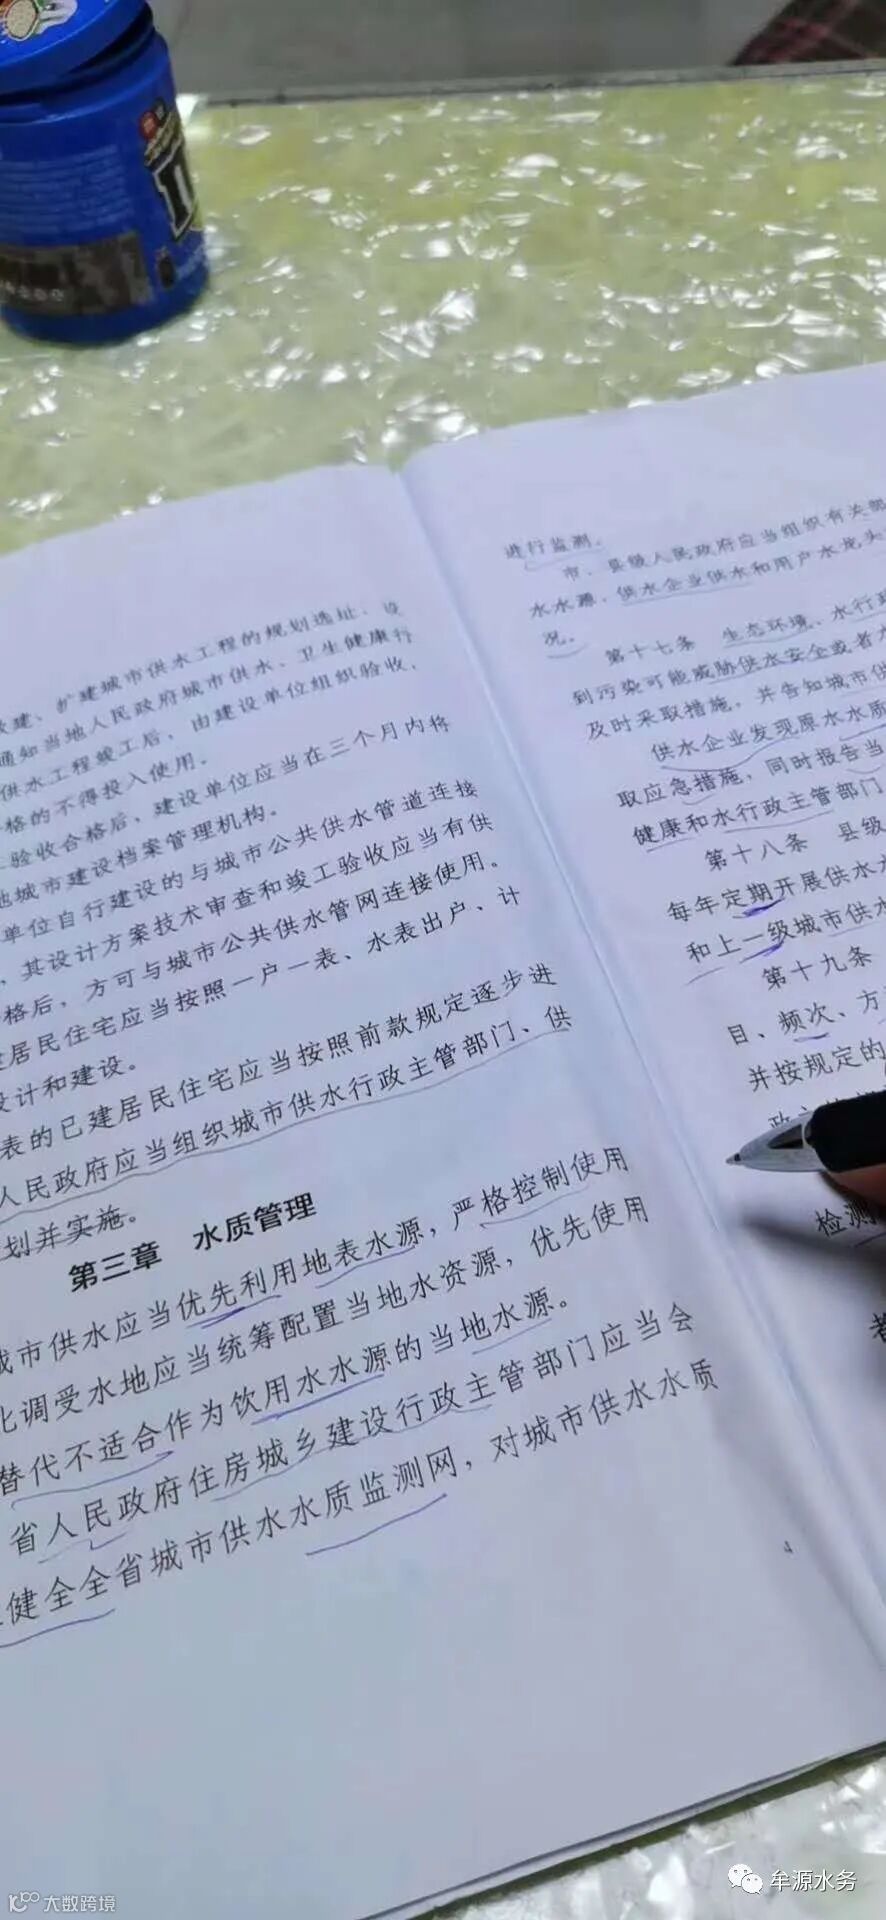 改建、扩建城市供水工程的规划选址、设
通知当地人民政府城市供水、卫生健康行
供水工程竣工后，由建设单位组织验收，
格的不得投入使用。
验收合格后，建设单位应当在三个月内将
地城市建设档案管理机构。
单位自行建设的与城市公共供水管道连接
，其设计方案技术审查和竣工验收应当有供
格后，方可与城市公共供水管网连接使用。
居民住宅应当按照一户一表、水表出户、计
设计和建设。
表的已建居民住宅应当按照前款规定逐步进
人民政府应当组织城市供水行政主管部门、供
划并实施。
第三章 水质管理
城市供水应当优先利用地表水源，严格控制使用
北调受水地应当统筹配置当地水资源，优先使用
替代不适合作为饮用水水源的当地水源。
省人民政府住房城乡建设行政主管部门应当会
健全全省城市供水水质监测网，对城市供水水质
4
进行监测。
市、县级人民政府应当组织有关部
水水源、供水企业供水和用户水龙头
况。
第十七条 生态环境、水行政
到污染可能威胁供水安全或者
及时采取措施，并告知城市供
供水企业发现原水水质
取应急措施，同时报告当
健康和水行政主管部门
第十八条 县级
每年定期开展供水水
和上一级城市供水
第十九条
目、频次、方
并按规定的
检测
牟源水务
大数跨境